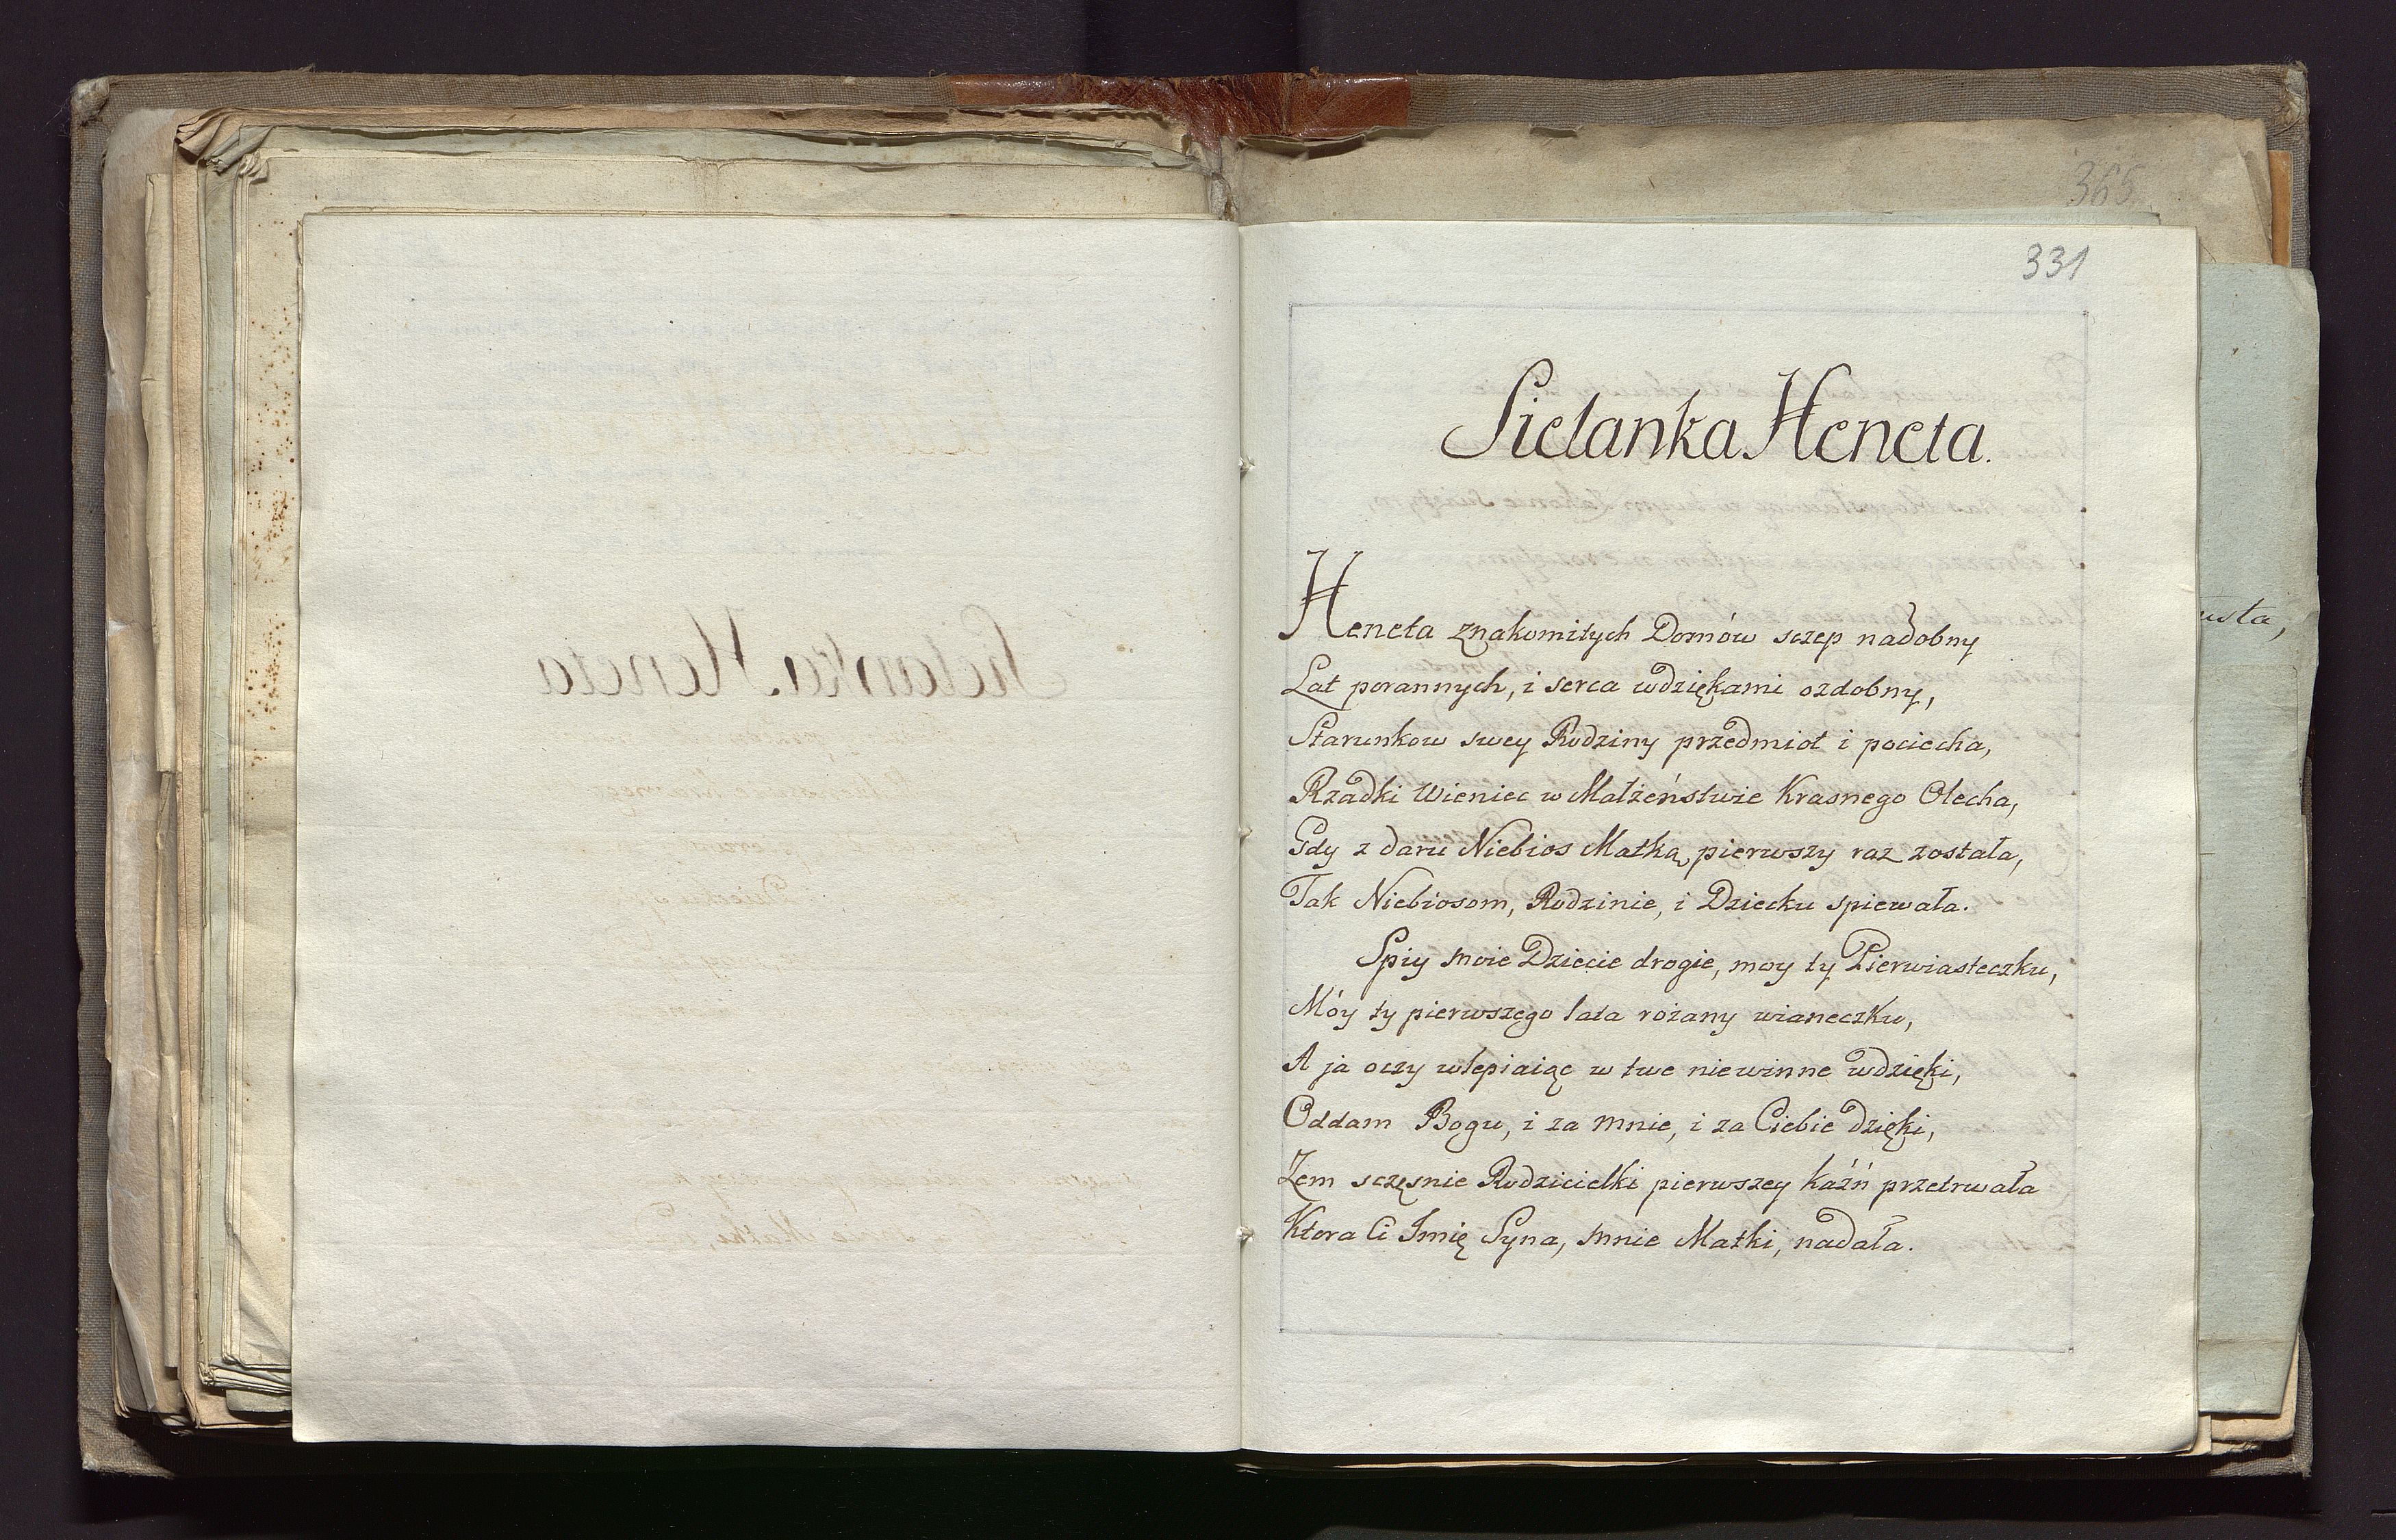 365
331
Sielanka Heneta.
Heneta znakomitych Domów sczep nadobny
Lat porannych, i serca wdziękami ozdobny,
Starunkow swey Rodziny przedmiot i pociecha,
Rzadki Wieniec w Małżeństwie Krasnego Olecha,
Gdy z daru Niebios Matką, pierwszy raz została,
Tak Niebiosom, Rodzinie, i Dziecku spiewała.
Spiy moie Dziecie drogie, moy ty Pierwiasteczku,
Móy ty pierwszego lata rożany wianeczku,
A ja oczy wlepiaiąc w twe niewinne wdzięki,
Oddam Bogu, i za mnie, i za Ciebie dzięki,
Żem sczęsnie Rodzicielki pierwszey kaźń przetrwała
Ktora Ci Imię Syna, mnie Matki, nadała.